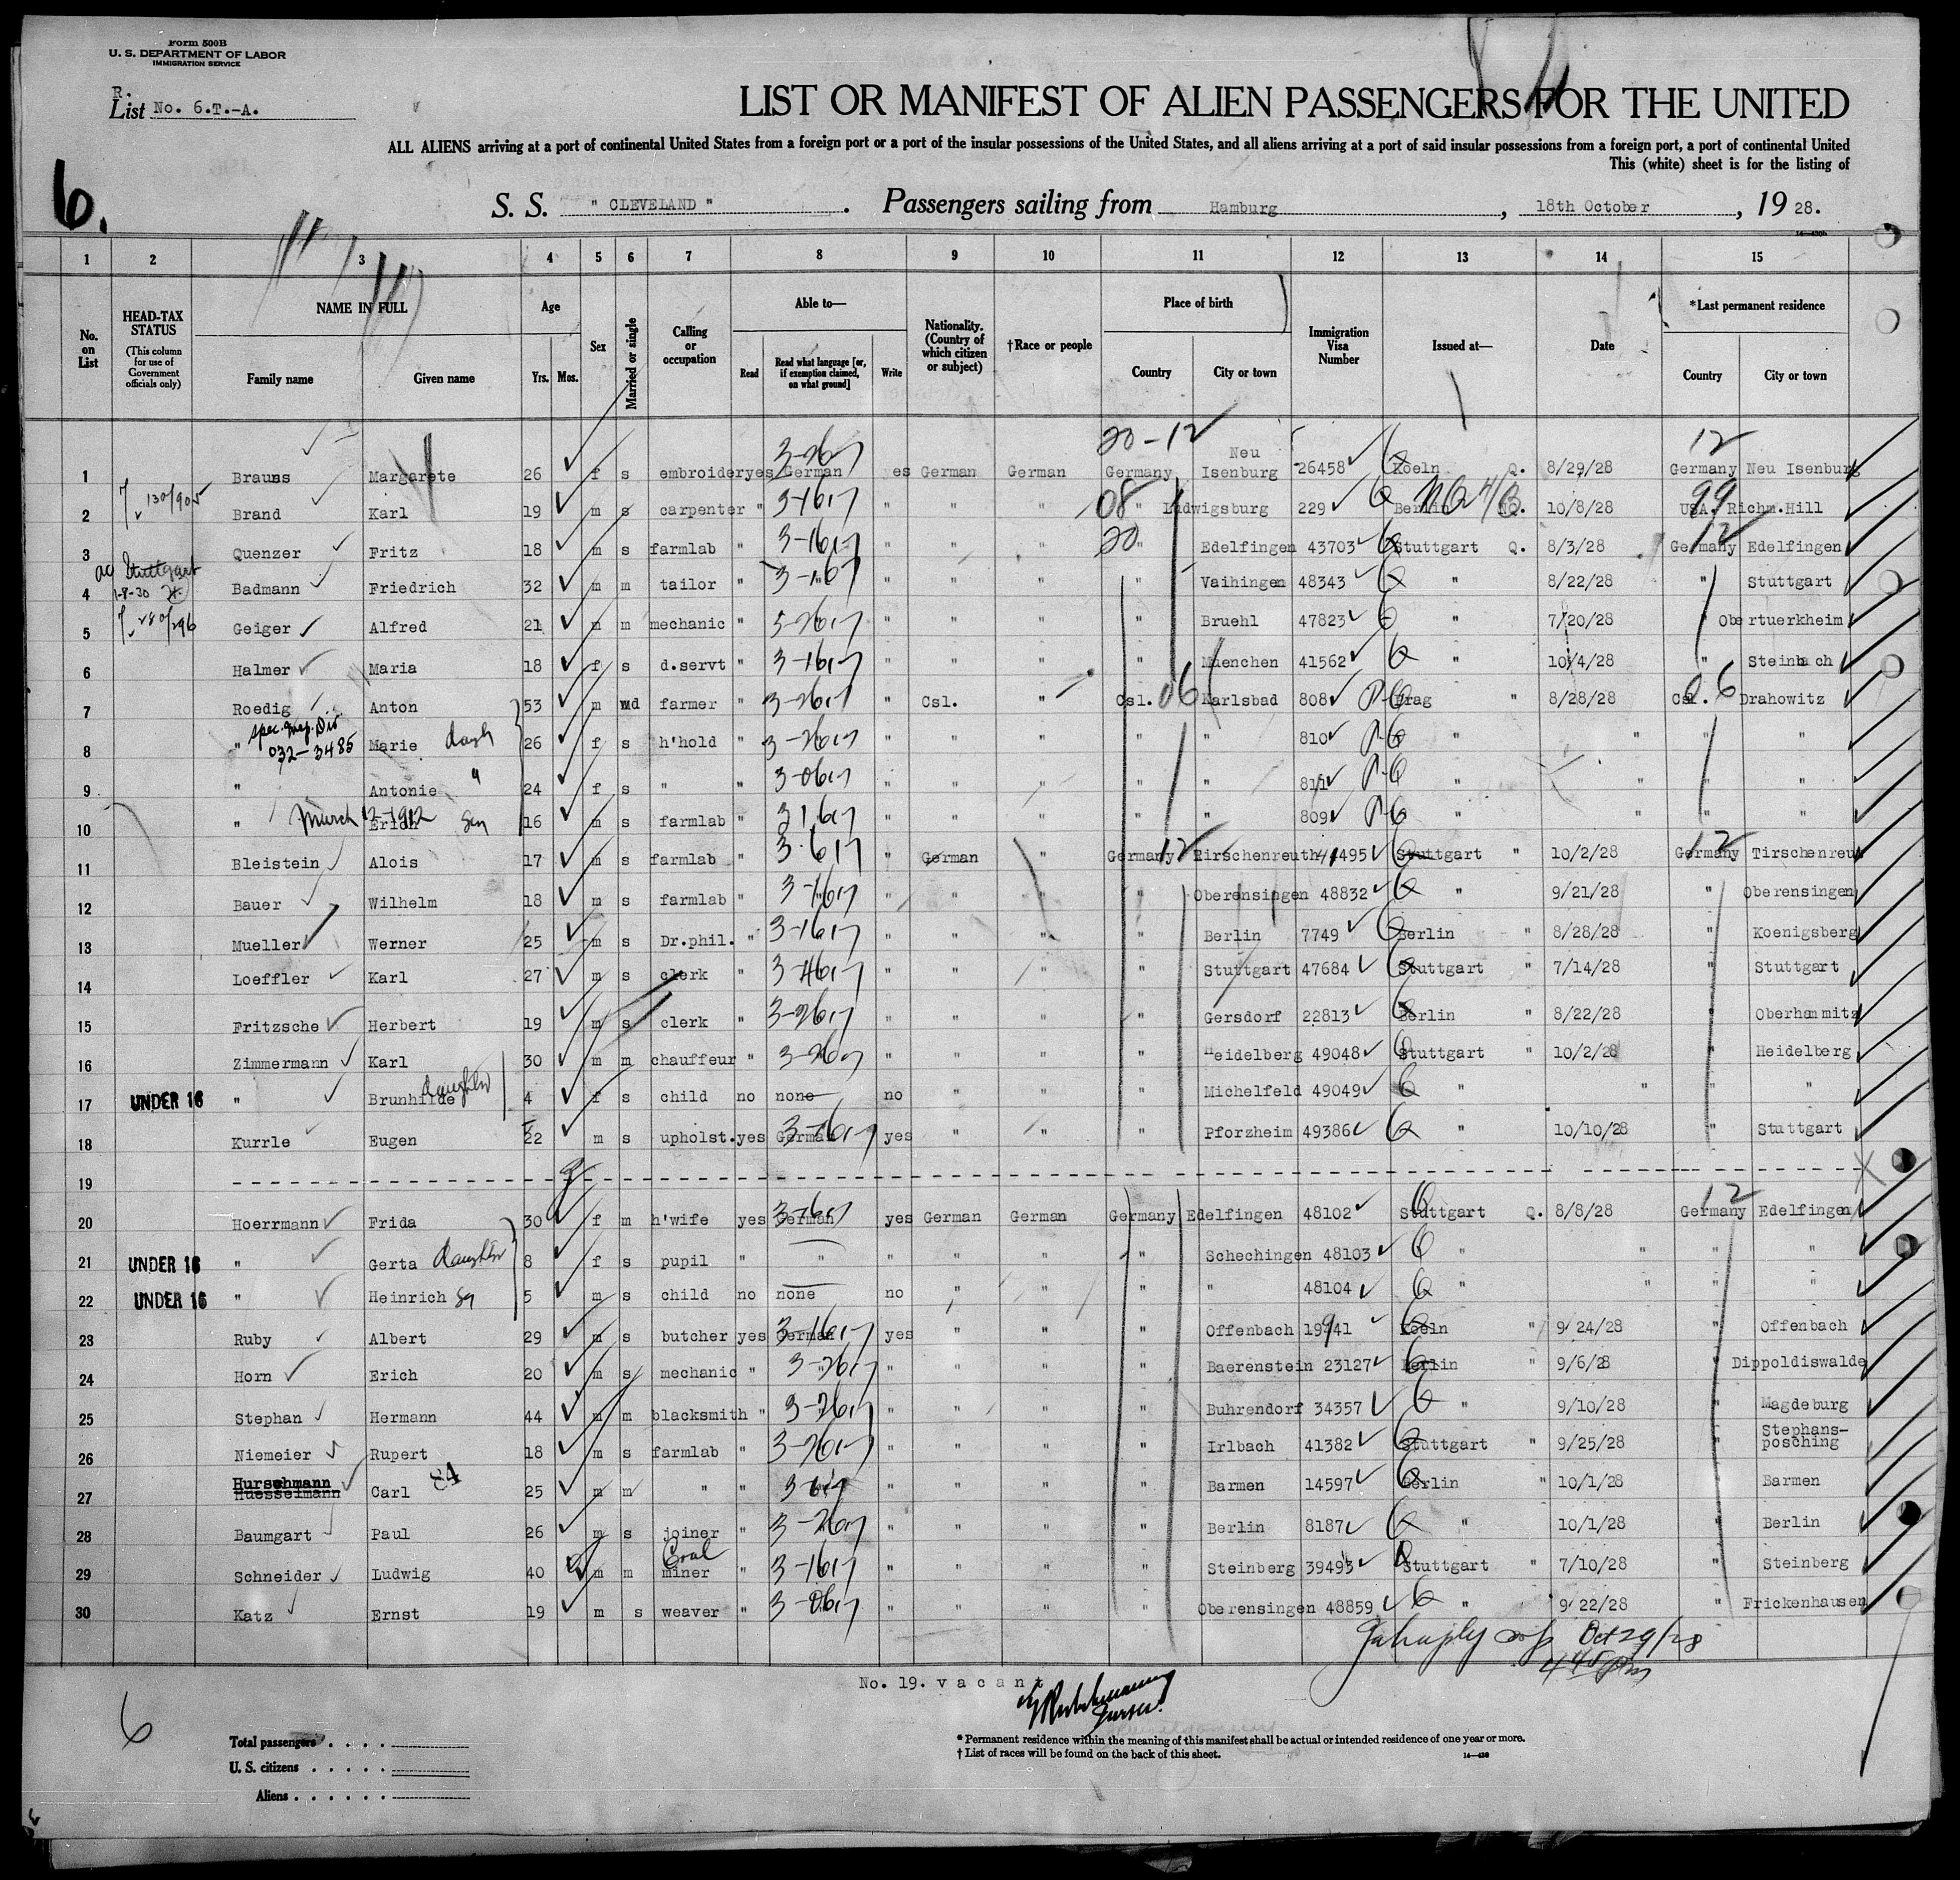 Form 500B
U. S. DEPARTMENT OF LABOR
IMMIGRATION SERVICE
R.
List No. 6.T.-A.
LIST OR MANIFEST OF ALIEN PASSENGERS FOR THE UNITED
ALL ALIENS arriving at a port of continental United States from a foreign port or a port of the insular possessions of the United States, and all aliens arriving at a port of said insular possessions from a foreign port, a port of continental United
This (white) sheet is for the listing of
6.
S. S. " CLEVELAND " . Passengers sailing from Hamburg , 18th October , 19 28.
1 2 3 4 5 6 7 8 9 10 11 12 13 14 15
No. on List
HEAD-TAX STATUS
(This column for use of Government officials only)
NAME IN FULL
Family name Given name
Age
Yrs. Mos.
Sex
Married or single
Calling or occupation
Able to—
Read
Read what language [or, if exemption claimed, on what ground]
Write
Nationality. (Country of which citizen or subject)
†Race or people
Place of birth
Country City or town
Immigration Visa Number
Issued at—
Date
*Last permanent residence
Country City or town
20-12 12
1 Brauns Margarete 26 f s embroider yes German es German German Germany Neu Isenburg 26458 Koeln Q. 8/29/28 Germany Neu Isenburg
2 Brand Karl 19 m s carpenter " " " " 08 " Ludwigsburg 229 Berlin NQ. 10/8/28 99 USA. Richm.Hill
3 Quenzer Fritz 18 m s farmlab " " " " 20 " Edelfingen 43703 Stuttgart Q. 8/3/28 12 Germany Edelfingen
Stuttgart
1-8-30
4 Badmann Friedrich 32 m m tailor " " " " " " Vaihingen 48343 " 8/22/28 " Stuttgart
5 Geiger Alfred 21 m m mechanic " " " " " Bruehl 47823 " 7/20/28 " Obertuerkheim
6 Halmer Maria 18 f s d.servt " " " " " Muenchen 41562 " 10/4/28 " Steinbach
7 Roedig Anton 53 m wd farmer " " Csl. " Csl. 06 Karlsbad 808 Prag " 8/28/28 Csl. 06 Drahowitz
spec. Inq. Div
032-3485
8 " Marie daugh 26 f s h'hold " " " " " " 810 " " " "
9 " Antonie " 24 f s " " " " " " " 811 " " " "
March 12-1912
10 " Erich son 16 m s farmlab " " " " " " 809 " " " "
11 Bleistein Alois 17 m s farmlab " " German " Germany 12 Tirschenreuth 41495 Stuttgart " 10/2/28 Germany 12 Tirschenreut
12 Bauer Wilhelm 18 m s farmlab " " " " " " Oberensingen 48832 " 9/21/28 " Oberensingen
13 Mueller Werner 25 m s Dr.phil. " " " " " Berlin 7749 Berlin " 8/28/28 " Koenigsberg
14 Loeffler Karl 27 m s clerk " " " " " Stuttgart 47684 Stuttgart " 7/14/28 " Stuttgart
15 Fritzsche Herbert 19 m s clerk " " " " " Gersdorf 22813 Berlin " 8/22/28 " Oberhammitz
16 Zimmermann Karl 30 m m chauffeur " " " " " Heidelberg 49048 Stuttgart " 10/2/28 " Heidelberg
17 UNDER 16 " Brunhilde daughter 4 f s child no none no " " " Michelfeld 49049 " " " "
18 Kurrle Eugen 22 m s upholst. yes German yes " " " Pforzheim 49386 " 10/10/28 " Stuttgart
19
20 Hoerrmann Frida 30 f m h'wife yes German yes German German Germany Edelfingen 48102 Stuttgart Q. 8/8/28 12 Germany Edelfingen
21 UNDER 16 " Gerta daughter 8 f s pupil " " " " " " Schechingen 48103 " " " "
22 UNDER 16 " Heinrich son 5 m s child no none no " " " " 48104 " " " "
23 Ruby Albert 29 m s butcher yes German yes " " " Offenbach 19941 Koeln " 9/24/28 " Offenbach
24 Horn Erich 20 m s mechanic " " " " " " Baerenstein 23127 Berlin " 9/6/28 " Dippoldiswalde
25 Stephan Hermann 44 m m blacksmith " " " " " Buhrendorf 34357 " 9/10/28 " Magdeburg
26 Niemeier Rupert 18 m s farmlab " " " " " Irlbach 41382 Stuttgart " 9/25/28 " Stephans-posching
27 Hurschmann Huesselmann Carl 84 25 m m " " " " " " Barmen 14597 Berlin " 10/1/28 " Barmen
28 Baumgart Paul 26 m s joiner " " " " " Berlin 8187 " 10/1/28 " Berlin
29 Schneider Ludwig 40 m m Coal miner " " " " " Steinberg 39493 Stuttgart " 7/10/28 " Steinberg
30 Katz Ernst 19 m s weaver " " " " " Oberensingen 48859 " " 9/22/28 " Frickenhausen
Oct 29/28
4 45 pm
No. 19. vacant
6
Total passengers . . . .
U. S. citizens . . . . .
Aliens . . . . . .
* Permanent residence within the meaning of this manifest shall be actual or intended residence of one year or more.
† List of races will be found on the back of this sheet.